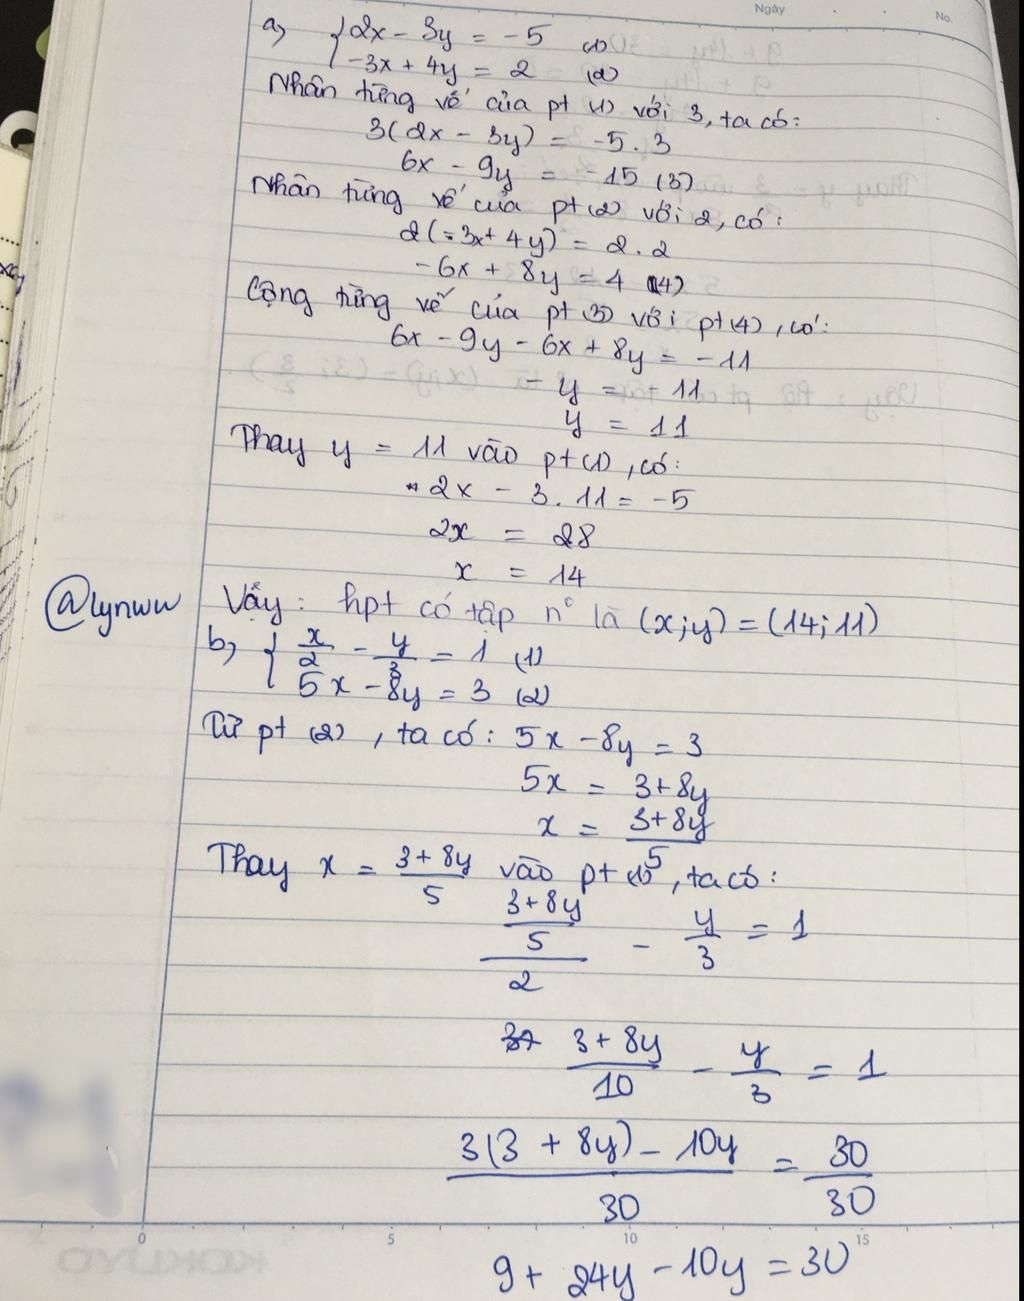 Ngày
No.
a, { 2x - 3y = -5 (1)
-3x + 4y = 2 (2)
Nhân từng vế của pt (1) với 3, ta có:
3(2x - 3y) = -5 . 3
6x - 9y = -15 (3)
Nhân từng vế của pt (2) với 2, có:
2(-3x + 4y) = 2 . 2
-6x + 8y = 4 (4)
Cộng từng vế của pt (3) với pt (4), có:
6x - 9y - 6x + 8y = -11
- y = -11
y = 11
Thay y = 11 vào pt (1), có:
2x - 3 . 11 = -5
2x = 28
x = 14
@lynww
Vậy: hpt có tập n° là (x;y) = (14; 11)
b, { x/2 - y/3 = 1 (1)
5x - 8y = 3 (2)
Từ pt (2), ta có: 5x - 8y = 3
5x = 3 + 8y
x = (3 + 8y)/5
Thay x = (3 + 8y)/5 vào pt (1), ta có:
((3 + 8y)/5)/2 - y/3 = 1
(3 + 8y)/10 - y/3 = 1
(3(3 + 8y) - 10y)/30 = 30/30
0 5 10 15
9 + 24y - 10y = 30
KOKUYO